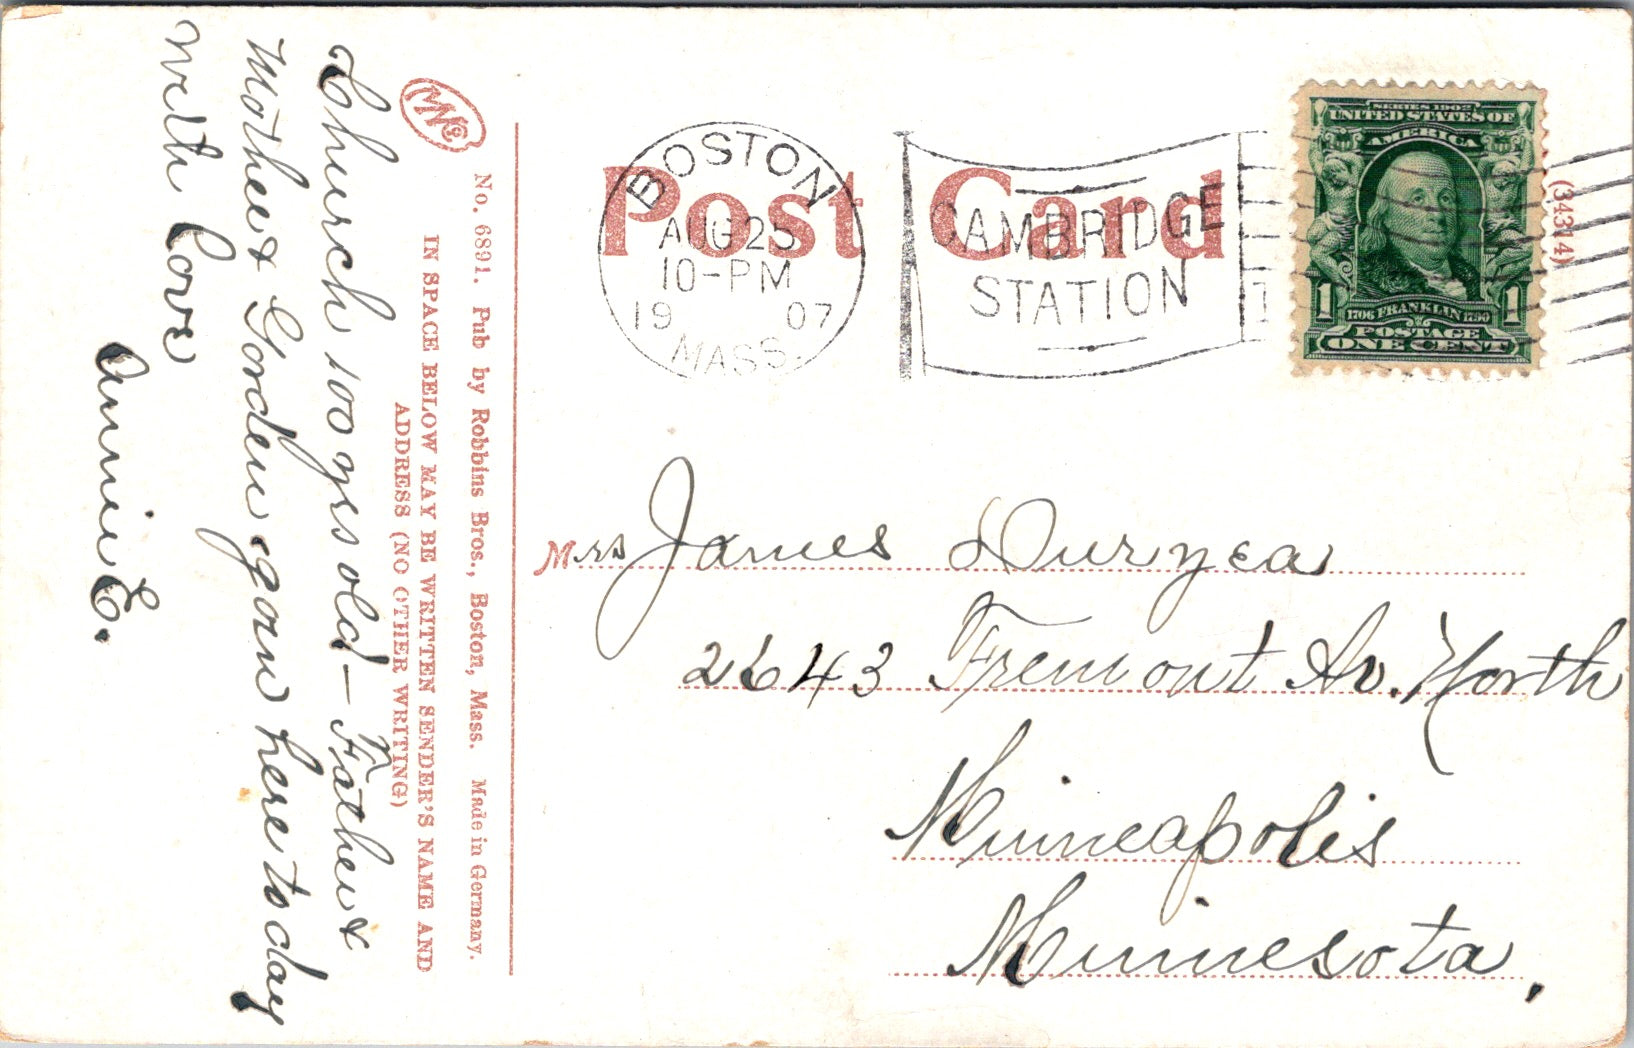 Church 100 yrs old — Father &
Mother & Gorden gone here to day
with love
Annie E.
MW Co.
No. 6891. Pub by Robbins Bros., Boston, Mass. Made in Germany.
IN SPACE BELOW MAY BE WRITTEN SENDER'S NAME AND
ADDRESS (NO OTHER WRITING)
Post Card
BOSTON
AUG 25
10-PM
19 07
MASS.
CAMBRIDGE
STATION
SERIES 1902
UNITED STATES OF
AMERICA
1 1
1706 FRANKLIN 1790
POSTAGE
ONE CENT
(34314)
Mrs James Duryea
2643 Fremont Av. North
Minneapolis
Minnesota,